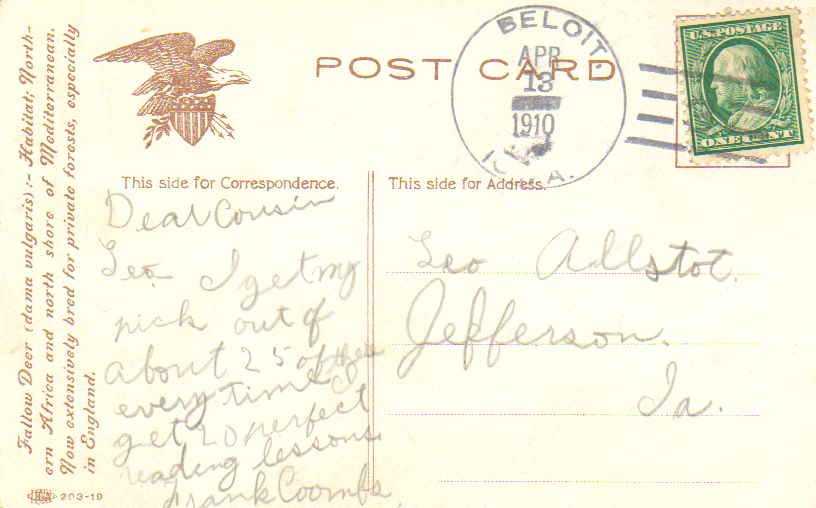 Fallow Deer (dama vulgaris) :- Habitat; North-
ern Africa and north shore of Mediterranean.
Now extensively bred for private forests, especially
in England.
203-19
POST CARD
BELOIT
APR
13
1910
IOWA.
U.S. POSTAGE
ONE CENT
This side for Correspondence.
Dear Cousin
Leo. I get my
pick out of
about 25 of these
every time I
get 20 perfect
reading lessons.
Frank Coombs.
This side for Address.
Leo Allstot.
Jefferson.
Ia.